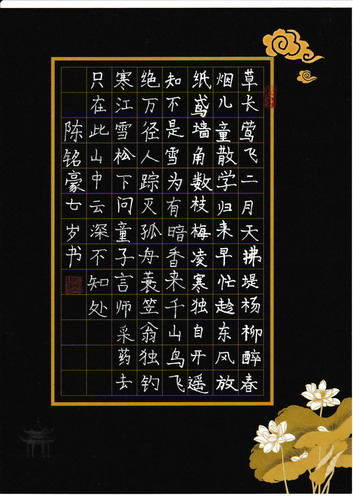 草长莺飞二月天拂堤杨柳醉春
烟儿童散学归来早忙趁东风放
纸鸢墙角数枝梅凌寒独自开遥
知不是雪为有暗香来千山鸟飞
绝万径人踪灭孤舟蓑笠翁独钓
寒江雪松下问童子言师采药去
只在此山中云深不知处
陈铭豪七岁书